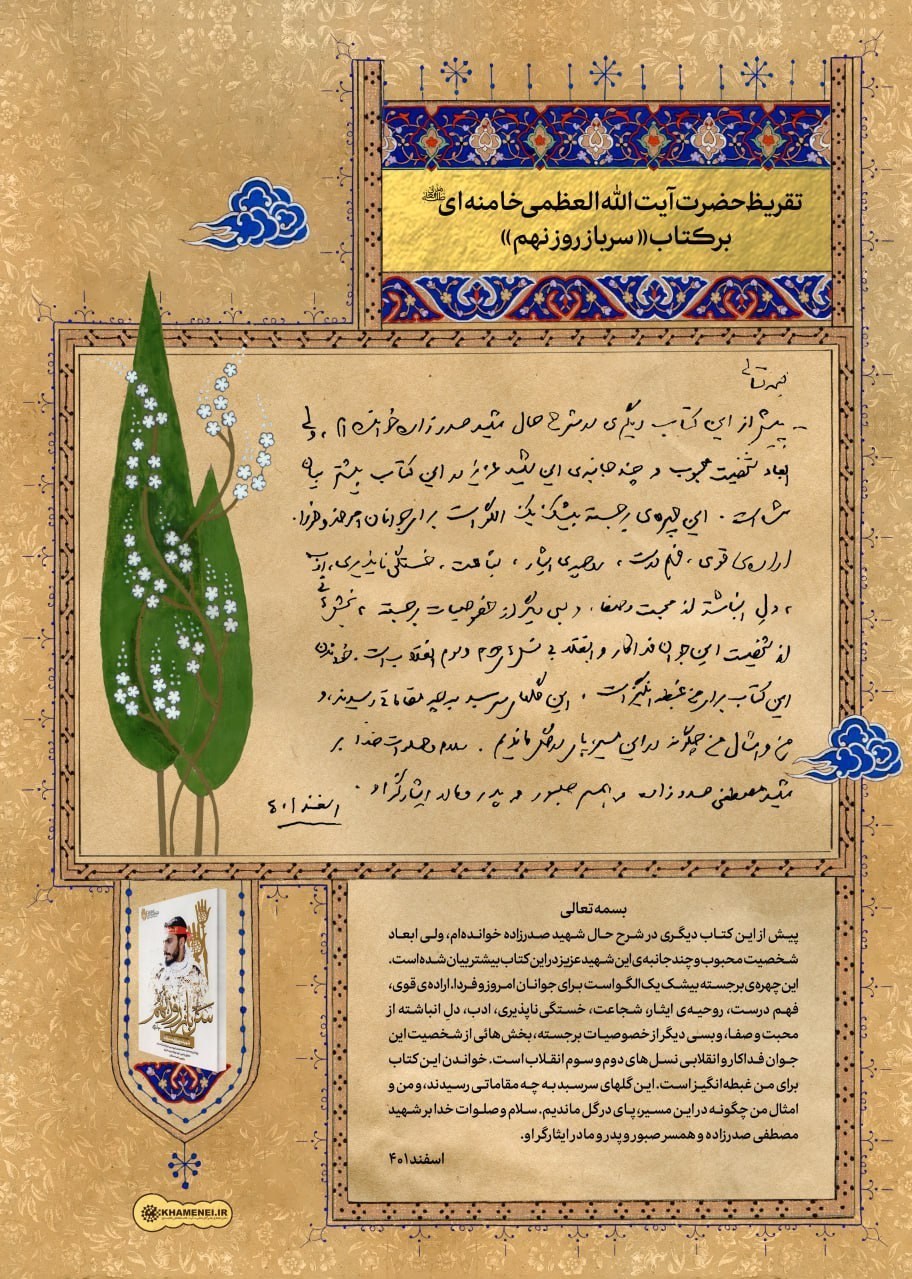 تقریظ حضرت آیت الله العظمی خامنه ای
بر کتاب «سرباز روز نهم»
بسمه‌تعالی
- پیش از این کتاب دیگری در شرح حال شهید صدرزاده خوانده‌ام، ولی
ابعاد شخصیت محبوب و چندجانبه‌ی این شهید عزیز در این کتاب بیشتر بیان
شده است. این چهره‌ی برجسته بیشک یک الگو است برای جوانان امروز و فردا.
اراده‌ی قوی، فهم درست، روحیه‌ی ایثار، شجاعت، خستگی‌ناپذیری، ادب
، دل انباشته از محبت و صفا، و بسی دیگر از خصوصیات برجسته، بخش‌هائی
از شخصیت این جوان فداکار و انقلابی نسل‌های دوم و سوم انقلاب است. خواندن
این کتاب برای من غبطه‌انگیز است. این گلهای سرسبد به چه مقاماتی رسیدند، و
من و امثال من چگونه در این مسیر، پای در گل ماندیم. سلام و صلوات خدا بر
شهید مصطفی صدرزاده و همسر صبور و پدر و مادر ایثارگر او.
اسفند ۴۰۱
بسمه تعالی
پیش از این کتاب دیگری در شرح حال شهید صدرزاده خوانده‌ام، ولی ابعاد
شخصیت محبوب و چندجانبه‌ی این شهید عزیز در این کتاب بیشتر بیان شده است.
این چهره‌ی برجسته بیشک یک الگو است برای جوانان امروز و فردا. اراده‌ی قوی،
فهم درست، روحیه‌ی ایثار، شجاعت، خستگی ناپذیری، ادب، دل انباشته از
محبت و صفا، و بسی دیگر از خصوصیات برجسته، بخش هائی از شخصیت این
جوان فداکار و انقلابی نسل های دوم و سوم انقلاب است. خواندن این کتاب
برای من غبطه انگیز است. این گلهای سرسبد به چه مقاماتی رسیدند، و من و
امثال من چگونه در این مسیر، پای در گل ماندیم. سلام و صلوات خدا بر شهید
مصطفی صدرزاده و همسر صبور و پدر و مادر ایثارگر او.
اسفند ۴۰۱
سرباز روز نهم
KHAMENEI.IR